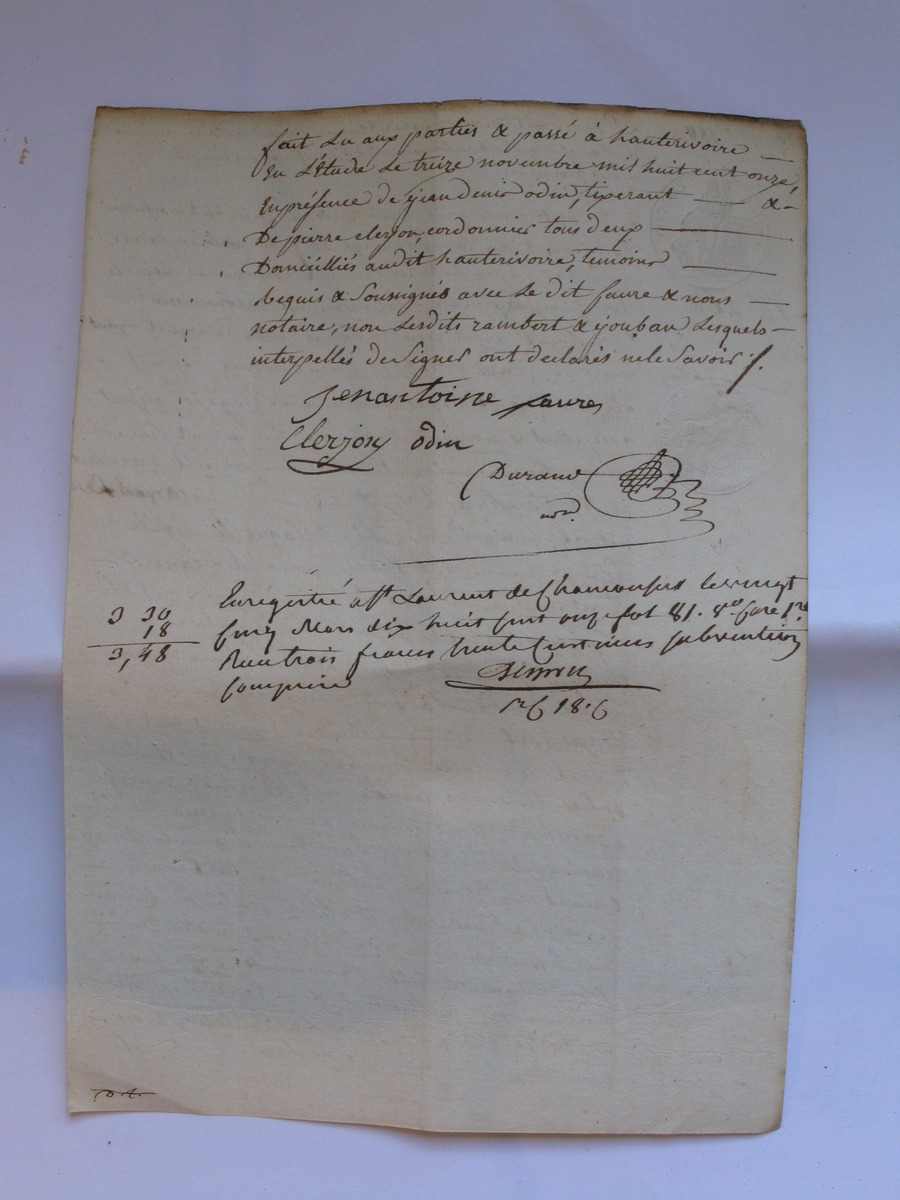 fait Lu aux parties & passé à hauterivoire —
En L'Étude Le treize novembre mil huit cent onze,
En présence de jean denis odin, tixerant — & -
De pierre clerjon, cordonnier tous deux —
Domiciliés audit hauterivoire, temoins —
Requis & Soussignés avec Le dit faure & nous —
notaire, non Lesdits rambert & jouban Lesquels -
interpellés de Signer ont declarés ne le Savoir ;/.
Jenantoine faure
Clerjon odin
Durand
not.
Enregistré a St Laurent de Chamousset le vingt
3 30
cinq dix huit cent onze fol 81. Vo Case 1re
18
3,48
Reçu trois francs trente Centimes subvention
comprise